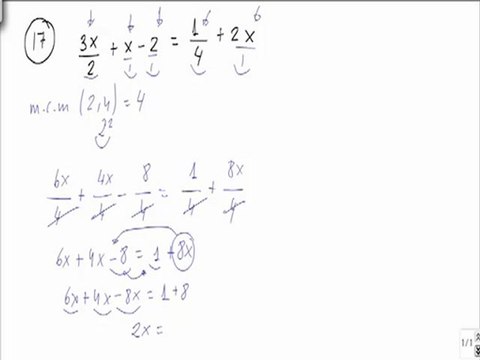 17 3x/2 + x/1 - 2/1 = 1/4 + 2x/1
m.c.m (2,4) = 4
2²
6x/4 + 4x/4 - 8/4 = 1/4 + 8x/4
6x + 4x - 8 = 1 + 8x
6x + 4x - 8x = 1 + 8
2x =
1/1